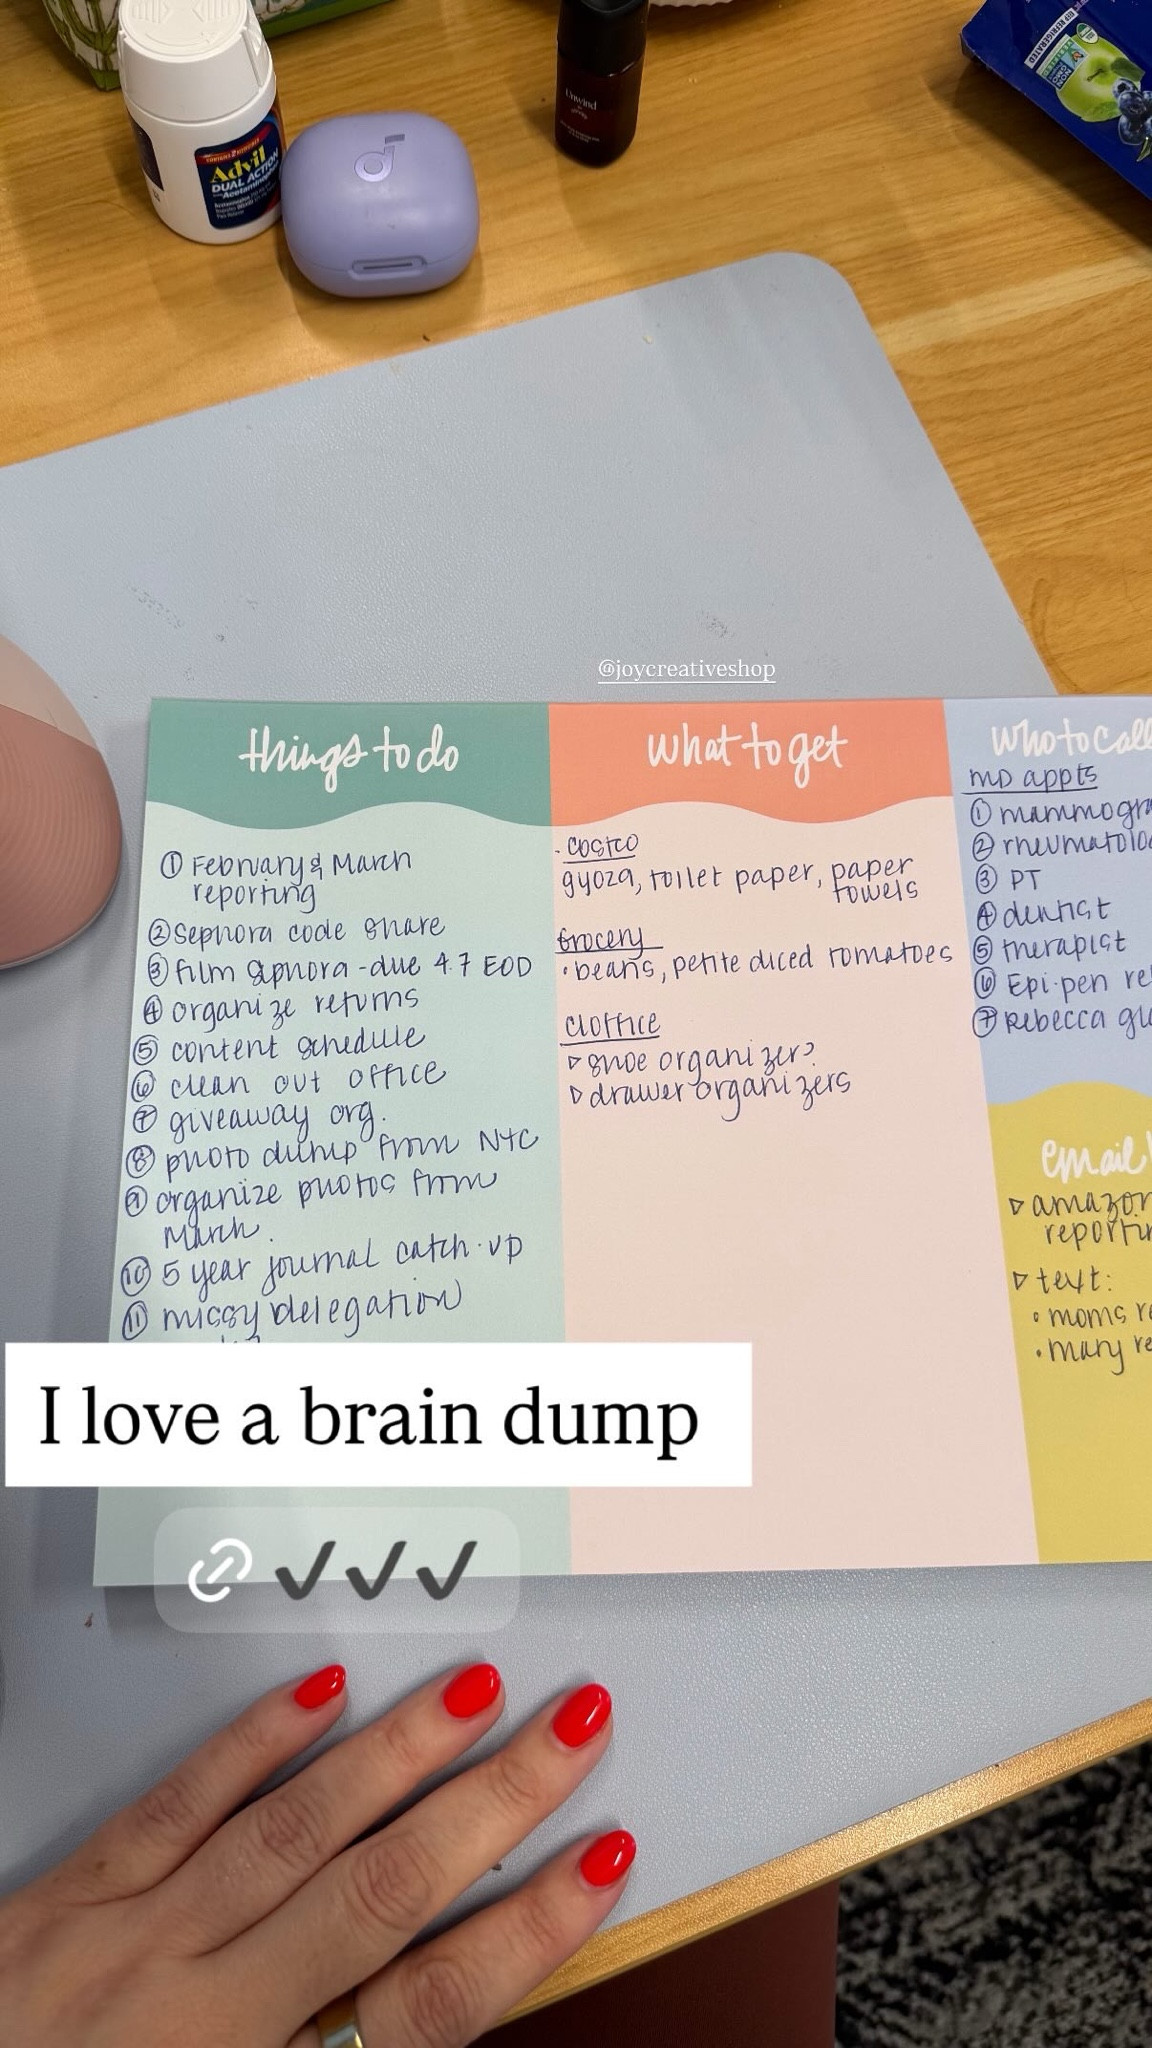 Advil
DUAL ACTION
Acetaminophen
Unwind
NOT REFRIGERATED
NON
GMO
@joycreativeshop
things to do
① February & March
reporting
② Sephora code share
③ film Sephora - due 4.7 EOD
④ organize returns
⑤ content schedule
⑥ clean out office
⑦ giveaway org.
⑧ photo dump from NYC
⑨ organize photos from
March.
⑩ 5 year journal catch-up
⑪ missy delegation
what to get
· Costco
gyoza, toilet paper, paper
towels
Grocery
· beans, petite diced tomatoes
cloffice
▹ shoe organizer?
▹ drawer organizers
who to call
MD appts
① mammogra
② rheumatolo
③ PT
④ dentist
⑤ therapist
⑥ Epi-pen re
⑦ Rebecca
email
▹ amazon
reportin
▹ text:
· moms re
· mary re
I love a brain dump
✓✓✓